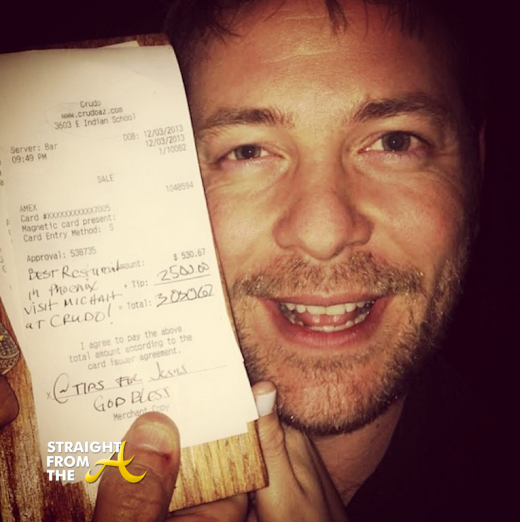 Crudo
www.crudoaz.com
3603 E Indian School
Server: Bar
DOB: 12/03/2013
09:49 PM
12/03/2013
1/10082
SALE
AMEX
1048594
Card #XXXXXXXXXXX7005
Magnetic card present:
Card Entry Method: S
Approval: 538735
Amount: $ 530.67
+ Tip: 2500.00
= Total: 3030.67
BEST Restaurant
in Phoenix
VISIT MICHAH
AT CRUDO!
I agree to pay the above
total amount according to the
card issuer agreement.
x @TIPS FOR JESUS
GOD BLESS
Merchant Copy
STRAIGHT
FROM
THE A